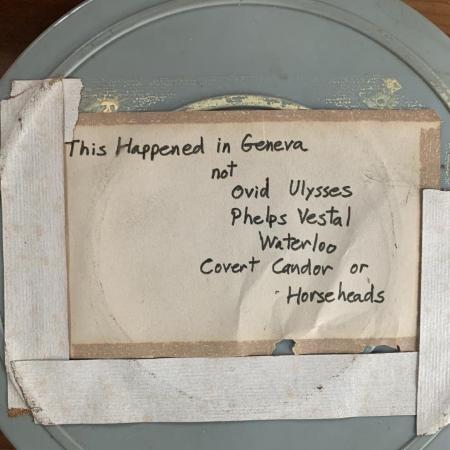 This Happened in Geneva
not
Ovid Ulysses
Phelps Vestal
Waterloo
Covert Candor or
Horseheads